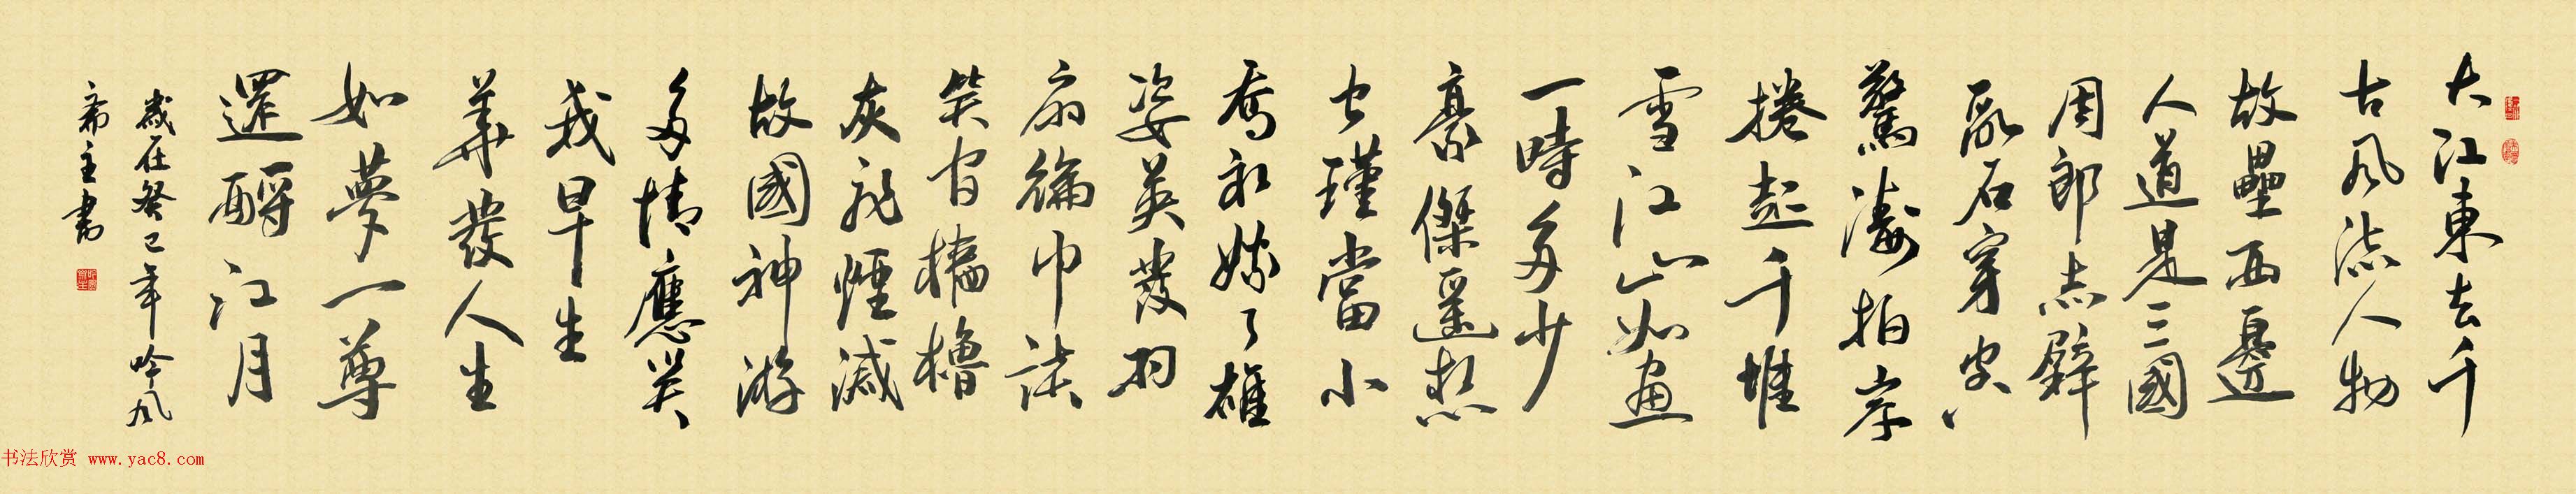 大江東去千
古風流人物
故壘西邊
人道是三國
周郎赤壁
亂石穿空
驚濤拍岸
捲起千堆
雪江山如畫
一時多少
豪傑遥想
公瑾當小
喬初嫁了雄
姿英發羽
扇綸巾談
笑間檣櫓
灰飛煙滅
故國神游
多情應笑
我早生
華發人生
如夢一尊
還酹江月
歲在癸巳年吟風
斋主書
书法欣赏 www.yac8.com